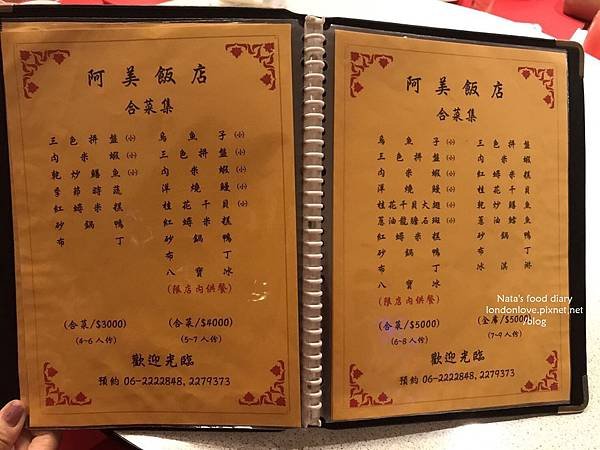 阿美飯店
合菜集
三色拼盤(小)
肉米蝦(小)
乾炒鱔魚(小)
季節時蔬
紅蟳米糕
砂鍋鴨
布丁
烏魚子(小)
三色拼盤(小)
肉米蝦(小)
洋燒鰻(小)
桂花干貝(小)
紅蟳米糕
砂鍋鴨
布丁
八寶冰
(限店內供餐)
(合菜/$3000)
(4~6 人份)
(合菜/$4000)
(5~7 人份)
歡迎光臨
預約 06-2222848, 2279373
阿美飯店
合菜集
烏魚子(小)
三色拼盤(小)
肉米蝦(小)
洋燒鰻(小)
桂花干貝大翅(小)
蔥油龍膽石斑(小)
紅蟳米糕
砂鍋鴨
布丁
八寶冰
(限店內供餐)
三色拼盤
肉米蝦
紅蟳米糕
桂花干貝
乾炒鱔魚
蔥油鱈魚
砂鍋鴨
布丁
冰淇淋
(合菜/$5000)
(6~8 人份)
(全席/$5000)
(7~9 人份)
歡迎光臨
預約 06-2222848, 2279373
Nata's food diary
londonlove.pixnet.net
/blog